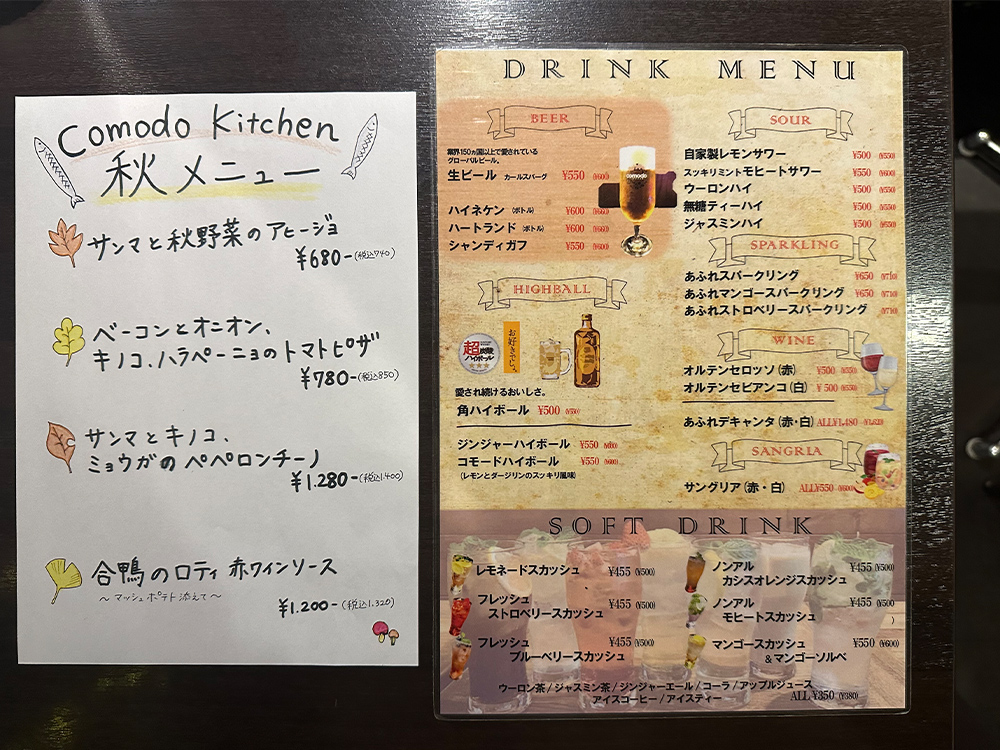 Comodo Kitchen
秋メニュー
サンマと秋野菜のアヒージョ
¥680-(税込740)
ベーコンとオニオン、
キノコ、ハラペーニョのトマトピザ
¥780-(税込850)
サンマとキノコ、
ミョウガのペペロンチーノ
¥1.280-(税込1.400)
合鴨のロティ 赤ワインソース
〜マッシュポテト添えて〜
¥1.200-(税込1.320)
DRINK MENU
BEER
業界150ヵ国以上で愛されている
グローバルビール。
生ビール カールスバーグ ¥550 (¥600)
comodo
ハイネケン (ボトル) ¥600 (¥660)
ハートランド (ボトル) ¥600 (¥660)
シャンディガフ ¥550 (¥600)
HIGHBALL
超炭酸
ハイボール
お好きでしょ。
愛され続けるおいしさ。
角ハイボール ¥500 (¥550)
ジンジャーハイボール ¥550 (¥600)
コモードハイボール ¥550 (¥600)
(レモンとダージリンのスッキリ風味)
SOUR
自家製レモンサワー ¥500 (¥550)
スッキリミントモヒートサワー ¥550 (¥600)
ウーロンハイ ¥500 (¥550)
無糖ティーハイ ¥500 (¥550)
ジャスミンハイ ¥500 (¥550)
SPARKLING
あふれスパークリング ¥650 (¥710)
あふれマンゴースパークリング ¥650 (¥710)
あふれストロベリースパークリング (¥710)
WINE
オルテンセロッソ(赤) ¥500 (¥550)
オルテンセビアンコ(白) ¥500 (¥550)
あふれデキャンタ(赤・白) ALL¥1,480 (¥1,620)
SANGRIA
サングリア(赤・白) ALL¥550 (¥600)
SOFT DRINK
レモネードスカッシュ ¥455 (¥500)
フレッシュ
ストロベリースカッシュ ¥455 (¥500)
フレッシュ
ブルーベリースカッシュ ¥455 (¥500)
ノンアル
カシスオレンジスカッシュ ¥455 (¥500)
ノンアル
モヒートスカッシュ ¥455 (¥500)
マンゴースカッシュ
&マンゴーソルベ ¥550 (¥600)
ウーロン茶/ジャスミン茶/ジンジャーエール/コーラ/アップルジュース
アイスコーヒー/アイスティー ALL¥350 (¥380)